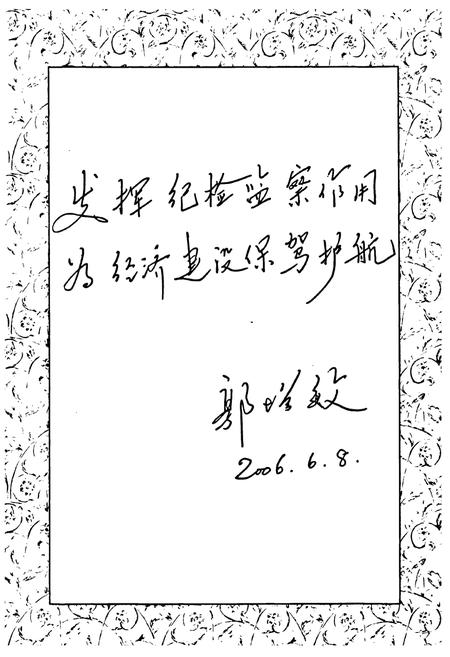 发挥纪检监察作用
为经济建设保驾护航
郭培
2006.6.8.